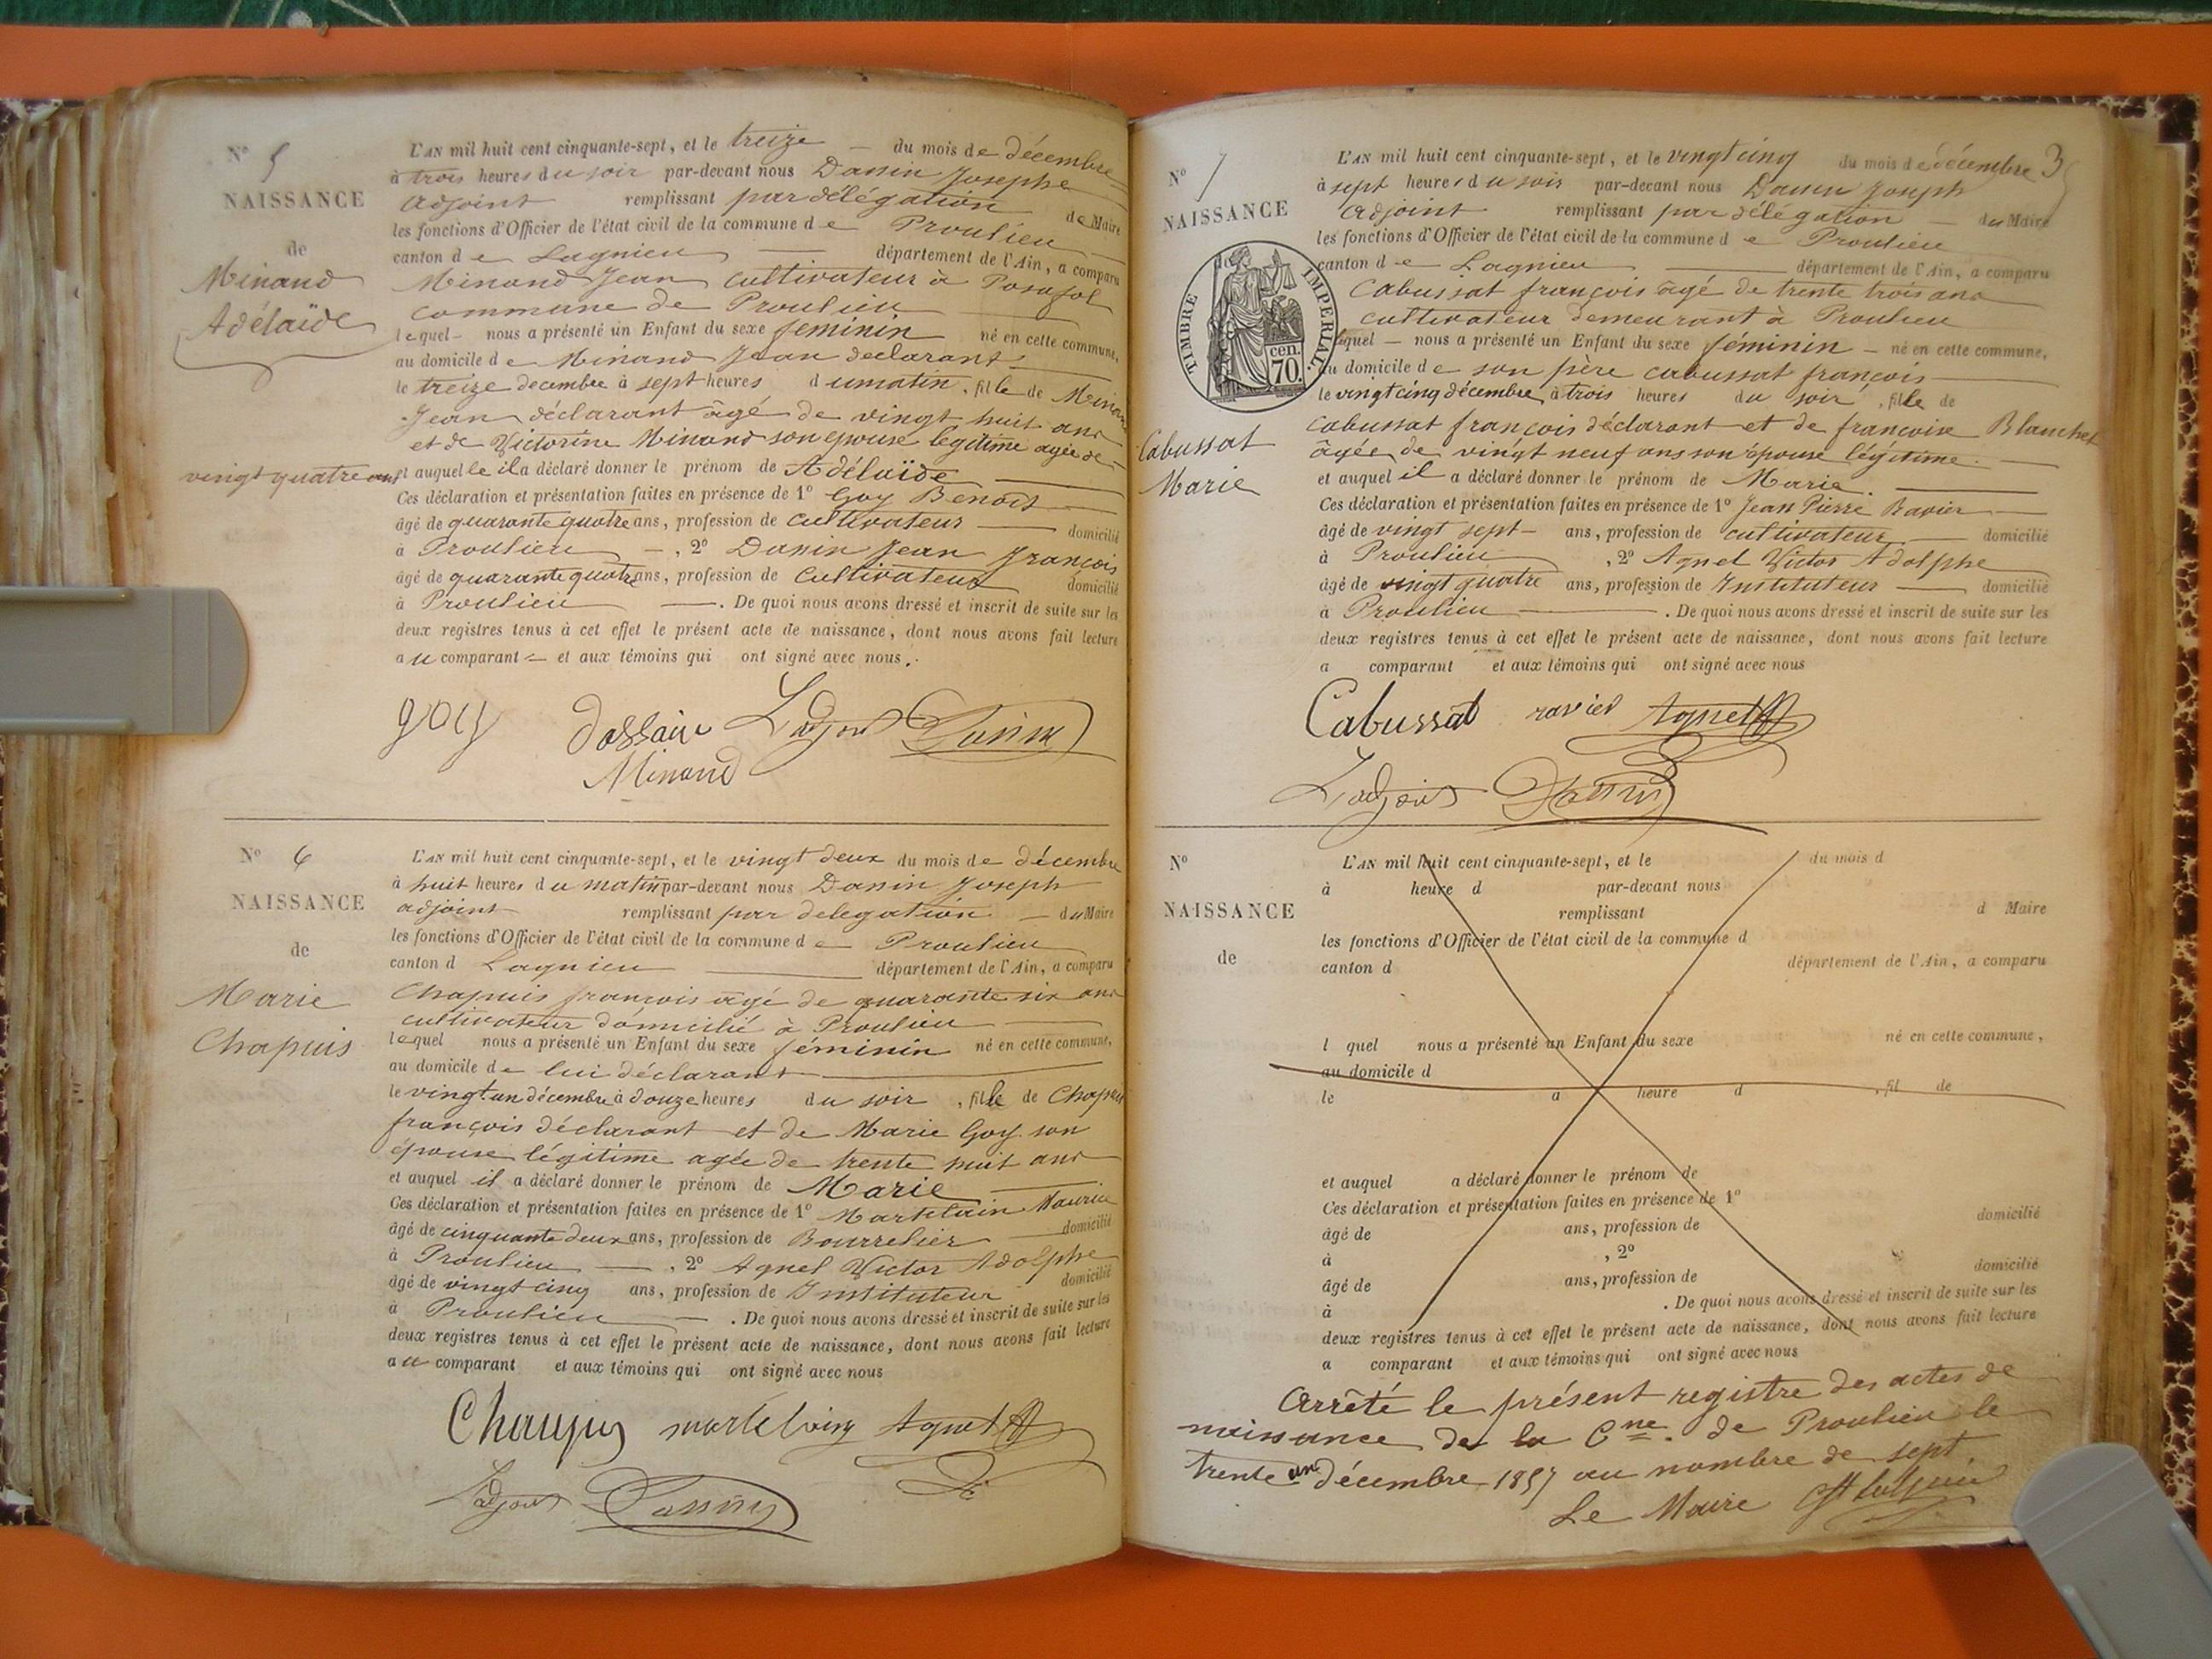 N° 5
NAISSANCE
de
Minand
Adélaïde
L'AN mil huit cent cinquante-sept, et le treize — du mois de décembre
à trois heures du soir par-devant nous Dannin Josephe
adjoint remplissant par délégation de Maire
les fonctions d'Officier de l'état civil de la commune de Proulieu
canton de Lagnieu — département de l'Ain, a comparu
Minand Jean cultivateur à Posafol
commune de Proulieu
lequel nous a présenté un Enfant du sexe feminin né en cette commune,
au domicile de Minand Jean declarant
le treize decembre à sept heures du matin, fille de Minand
Jean déclarant âgé de vingt huit ans
et de Victorine Minand son épouse légitime agée de
vingt quatre ans et auquelle il a déclaré donner le prénom de Adélaïde
Ces déclaration et présentation faites en présence de 1° Goy Benoit
âgé de quarante quatre ans, profession de cultivateur — domicilié
à Proulieu —, 2° Dannin Jean François
âgé de quarante quatre ans, profession de Cultivateur domicilié
à Proulieu —. De quoi nous avons dressé et inscrit de suite sur les
deux registres tenus à cet effet le présent acte de naissance, dont nous avons fait lecture
au comparant — et aux témoins qui ont signé avec nous.
goy L'adjoint Dannin
Minand
N° 6
NAISSANCE
de
Marie
Chapuis
L'AN mil huit cent cinquante-sept, et le vingt deux du mois de décembre
à huit heures du matin par-devant nous Dannin Joseph
adjoint remplissant par delegation — du Maire
les fonctions d'Officier de l'état civil de la commune de Proulieu
canton d Lagnieu — département de l'Ain, a comparu
Chapuis françois âgé de quarante six ans
cultivateur domicilié à Proulieu
lequel nous a présenté un Enfant du sexe féminin né en cette commune,
au domicile de lui déclarant
le vingt un décembre à douze heures du soir, fille de Chapuis
françois déclarant et de Marie Goy son
épouse légitime agée de trente huit ans
et auquel il a déclaré donner le prénom de Marie
Ces déclaration et présentation faites en présence de 1° Martelain Maurice
âgé de cinquante deux ans, profession de Bourrelier — domicilié
à Proulieu —, 2° Agnel Victor Adolphe
âgé de vingt cinq ans, profession de Instituteur domicilié
à Proulieu —. De quoi nous avons dressé et inscrit de suite sur les
deux registres tenus à cet effet le présent acte de naissance, dont nous avons fait lecture
au comparant et aux témoins qui ont signé avec nous
Agnel
L'adjoint Dannin
3
N° 7
NAISSANCE
de
TIMBRE IMPERIAL.
70 cen.
Cabussat
Marie
L'AN mil huit cent cinquante-sept, et le vingt cinq du mois de décembre
à sept heures du soir par-devant nous Dannin Joseph
adjoint remplissant par délégation — du Maire
les fonctions d'Officier de l'état civil de la commune de Proulieu
canton de Lagnieu — département de l'Ain, a comparu
Cabussat françois âgé de trente trois ans
cultivateur demeurant à Proulieu
lequel — nous a présenté un Enfant du sexe féminin — né en cette commune,
au domicile de son père cabussat françois
le vingt cinq décembre à trois heures du soir, fille de
Cabussat françois déclarant et de françoise Blanchet
âgée de vingt neuf ans son épouse légitime.
et auquel il a déclaré donner le prénom de Marie.
Ces déclaration et présentation faites en présence de 1° Jean Pierre Ravier
âgé de vingt sept — ans, profession de cultivateur — domicilié
à Proulieu, 2° Agnel Victor Adolphe
âgé de vingt quatre ans, profession de Instituteur — domicilié
à Proulieu —. De quoi nous avons dressé et inscrit de suite sur les
deux registres tenus à cet effet le présent acte de naissance, dont nous avons fait lecture
a comparant et aux témoins qui ont signé avec nous
Cabussat ravier Agnel
L'adjoint Dannin
N°
NAISSANCE
de
L'AN mil huit cent cinquante-sept, et le du mois d
à heure d par-devant nous
remplissant d Maire
les fonctions d'Officier de l'état civil de la commune d
canton d département de l'Ain, a comparu
l quel nous a présenté un Enfant du sexe né en cette commune,
au domicile d
le à heure d, fil de
et auquel a déclaré donner le prénom de
Ces déclaration et présentation faites en présence de 1°
âgé de ans, profession de domicilié
à, 2°
âgé de ans, profession de domicilié
à. De quoi nous avons dressé et inscrit de suite sur les
deux registres tenus à cet effet le présent acte de naissance, dont nous avons fait lecture
a comparant et aux témoins qui ont signé avec nous
Arrêté le présent registre des actes de
naissance de la Cne. de Proulieu le
trente un décembre 1857 au nombre de sept
Le Maire